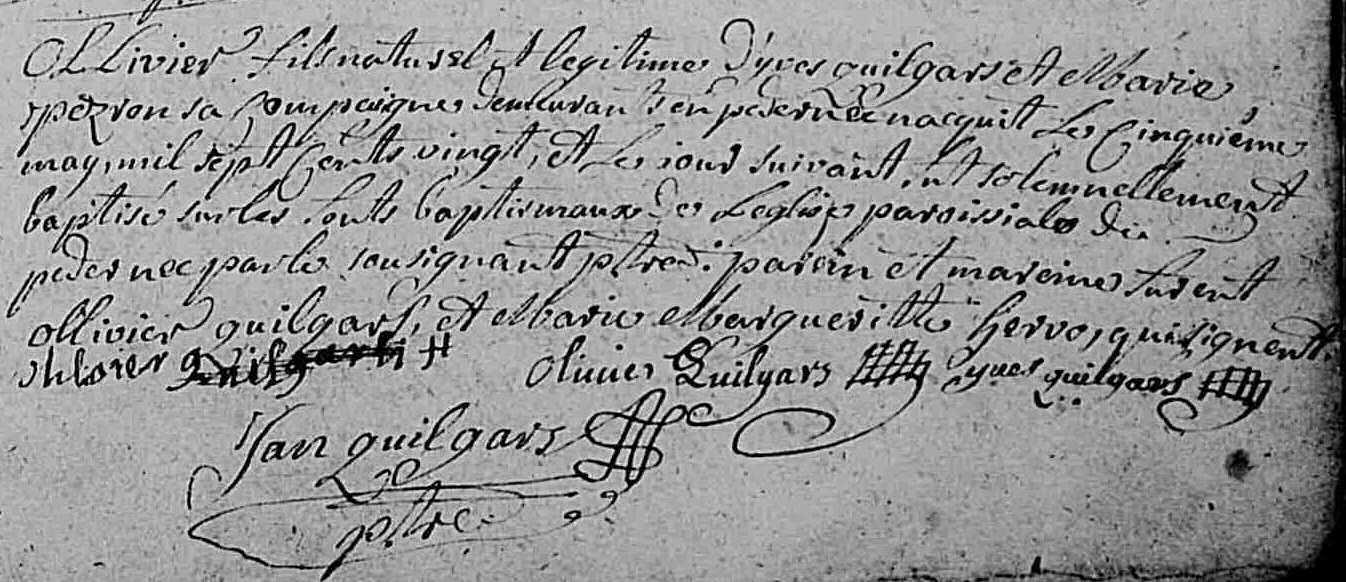 Ollivier fils naturel et legitime d'yves quilgars et Marie
pezron sa Compaigne demeurants en pedernec nacquit Le Cinquiéme
may, mil sept Cents vingt, et Le jour suivant, fut solemnellement
baptisé sur les fonts baptismaux de Leglise paroissiale de
pedernec par le sousignant ptre: parein et mareine furent
ollivier quilgars, et Marie Margueritte hervo, qui signent.
ollivier
olivier Quilgars yves quilgars
Jan quilgars
ptre